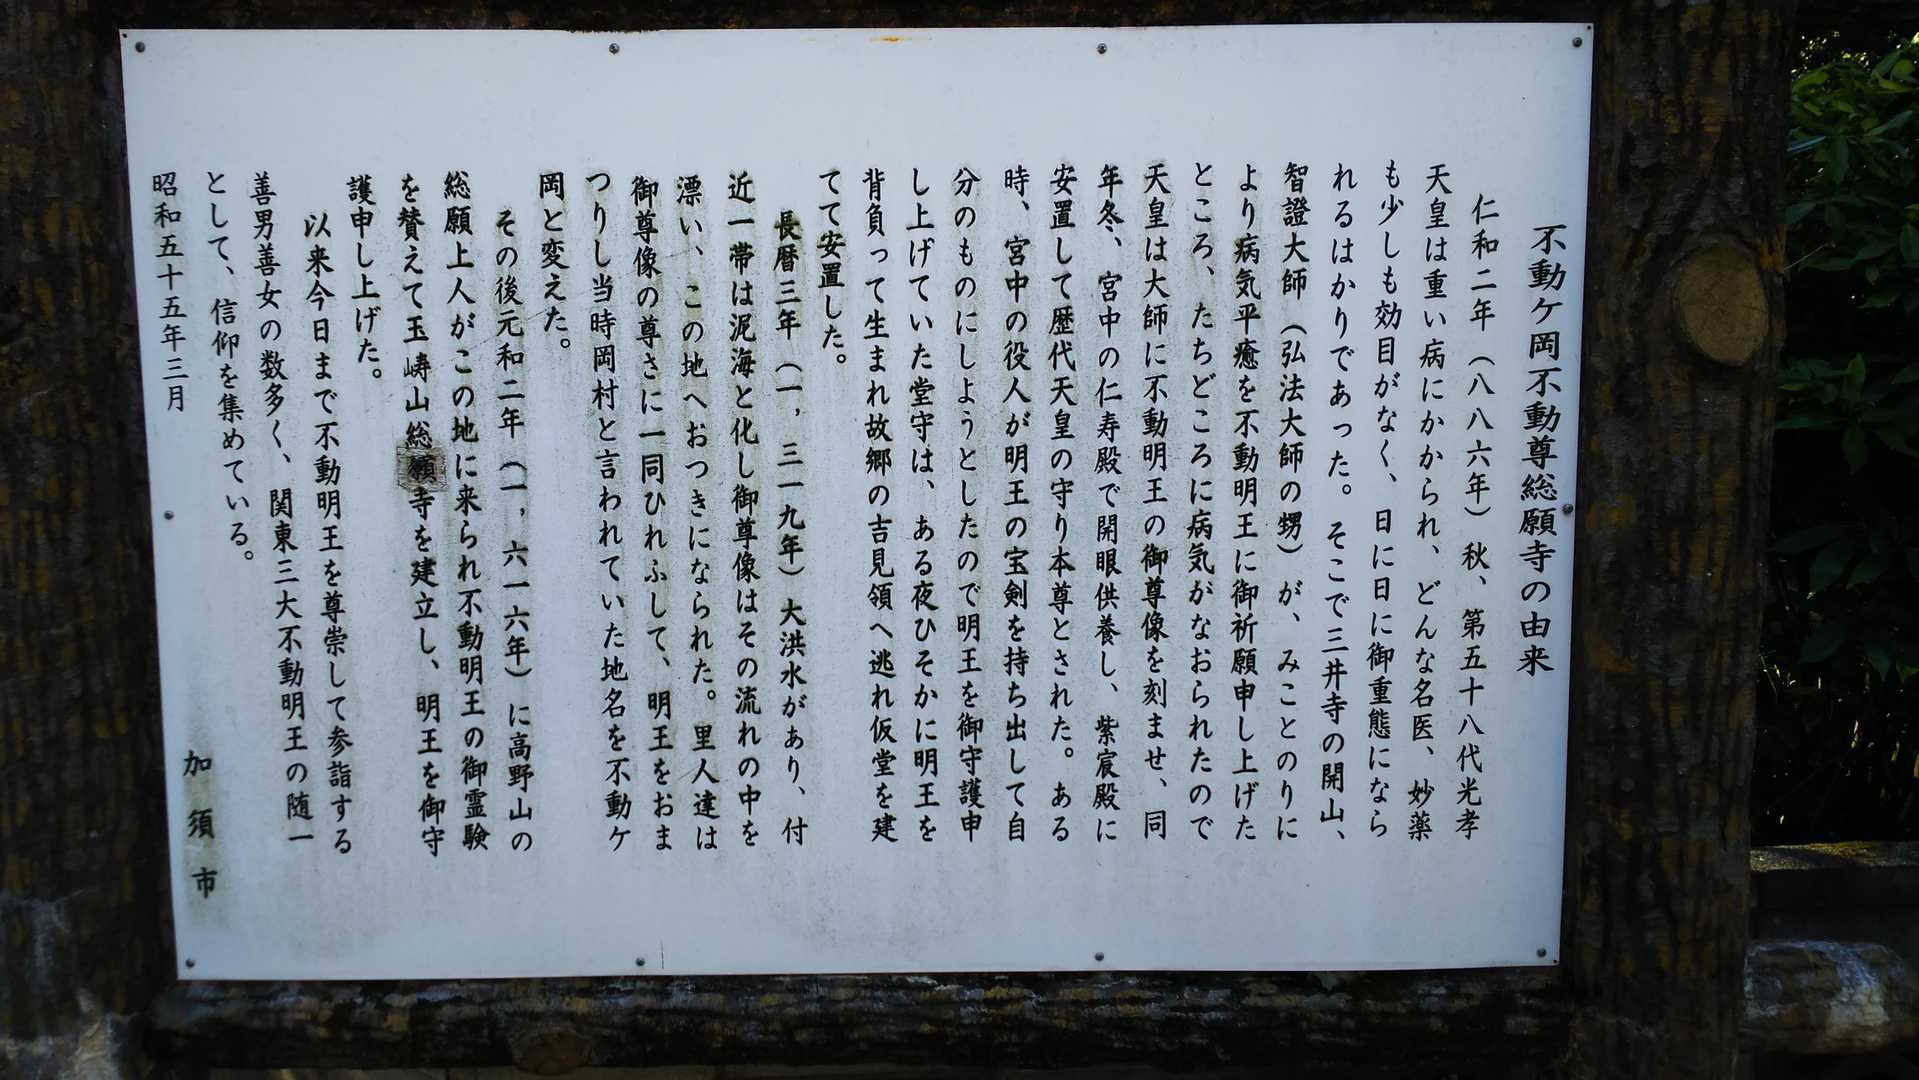 不動ケ岡不動尊総願寺の由来
仁和二年（八八六年）秋、第五十八代光孝
天皇は重い病にかかられ、どんな名医、妙薬
も少しも効目がなく、日に日に御重態になら
れるはかりであった。そこで三井寺の開山、
智證大師（弘法大師の甥）が、みことのりに
より病気平癒を不動明王に御祈願申し上げた
ところ、たちどころに病気がなおられたので
天皇は大師に不動明王の御尊像を刻ませ、同
年冬、宮中の仁寿殿で開眼供養し、紫宸殿に
安置して歴代天皇の守り本尊とされた。ある
時、宮中の役人が明王の宝剣を持ち出して自
分のものにしようとしたので明王を御守護申
し上げていた堂守は、ある夜ひそかに明王を
背負って生まれ故郷の吉見領へ逃れ仮堂を建
てて安置した。
長暦三年（一，三一九年）大洪水があり、付
近一帯は泥海と化し御尊像はその流れの中を
漂い、この地へおつきになられた。里人達は
御尊像の尊さに一同ひれふして、明王をおま
つりし当時岡村と言われていた地名を不動ケ
岡と変えた。
その後元和二年（一，六一六年）に高野山の
総願上人がこの地に来られ不動明王の御霊験
を賛えて玉嶹山総願寺を建立し、明王を御守
護申し上げた。
以来今日まで不動明王を尊崇して参詣する
善男善女の数多く、関東三大不動明王の随一
として、信仰を集めている。
昭和五十五年三月
加須市